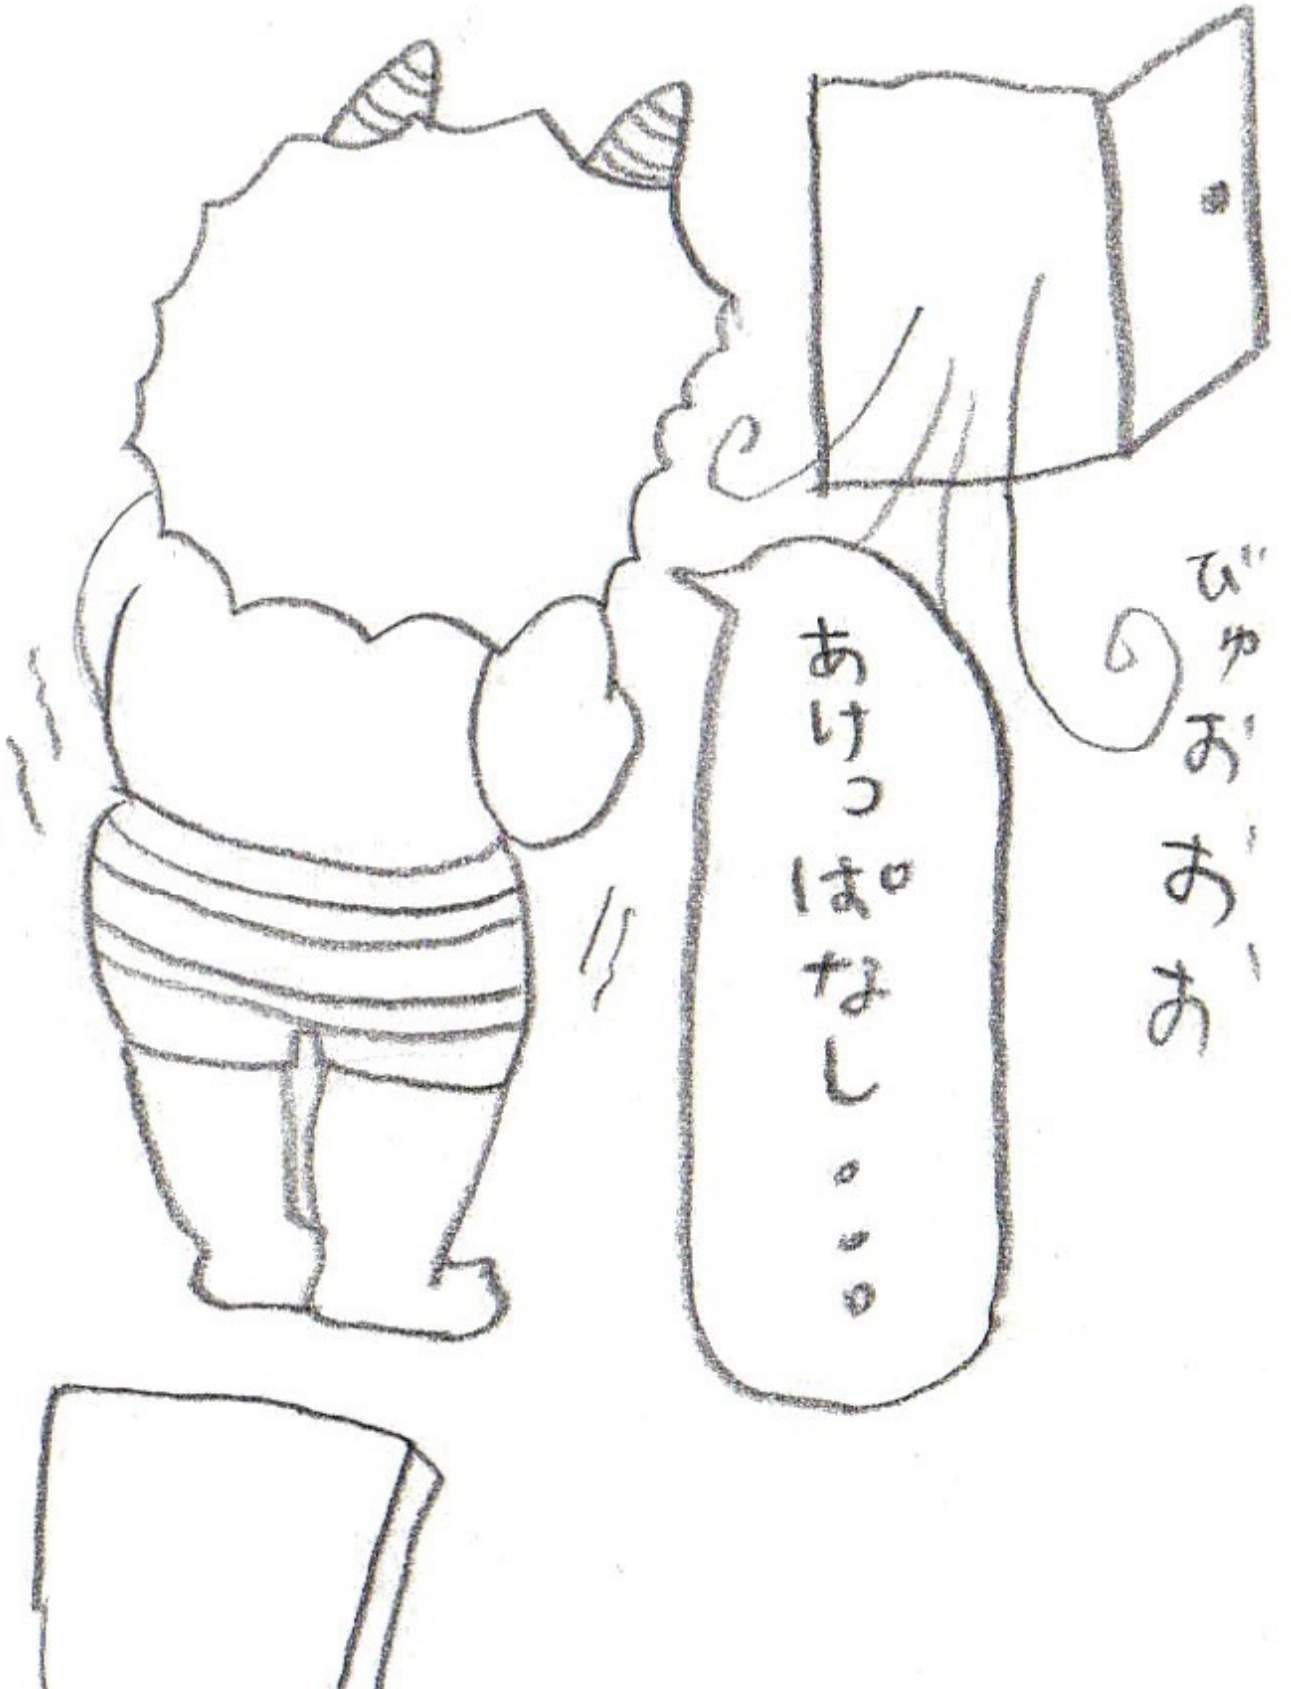 びゅおおお
あけっぱなし・・・